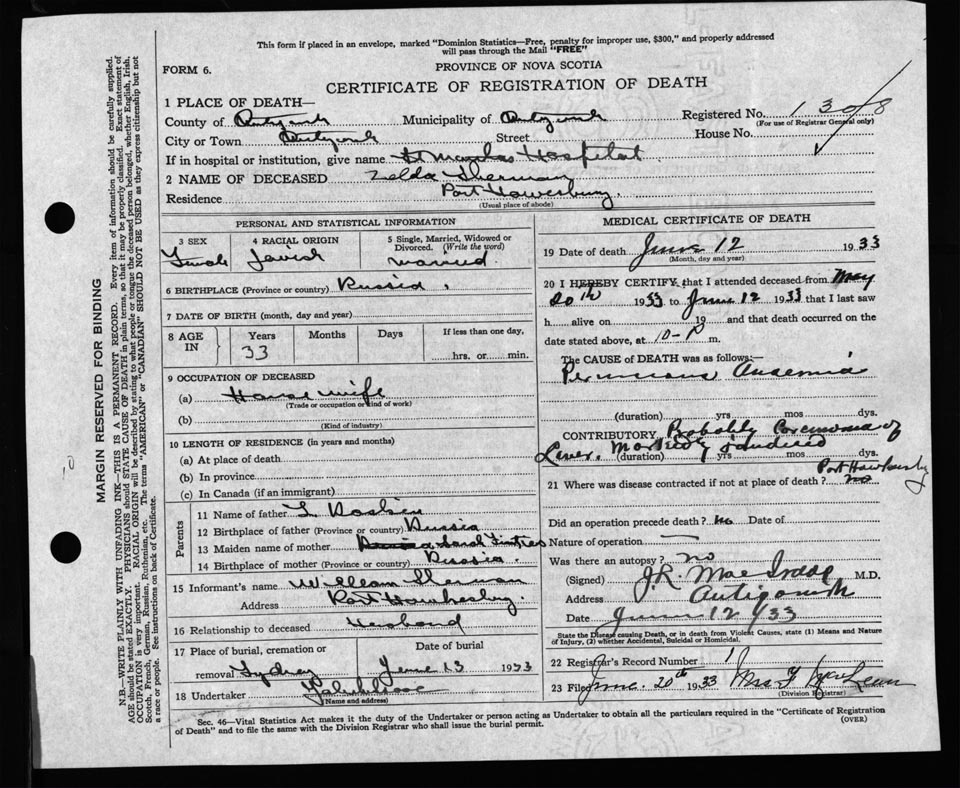 This form if placed in an envelope, marked "Dominion Statistics—Free, penalty for improper use, $300," and properly addressed
will pass through the Mail "FREE"
FORM 6.
PROVINCE OF NOVA SCOTIA
CERTIFICATE OF REGISTRATION OF DEATH
1 PLACE OF DEATH—
County of Antigonish Municipality of Antigonish Registered No. 1308
(For use of Registrar General only)
City or Town Antigonish Street House No.
If in hospital or institution, give name St Marthas Hospital
2 NAME OF DECEASED Zelda Sherman
Residence Port Hawkesbury.
(Usual place of abode)
PERSONAL AND STATISTICAL INFORMATION
3 SEX 4 RACIAL ORIGIN 5 Single, Married, Widowed or Divorced. (Write the word)
Female married
6 BIRTHPLACE (Province or country) Russia
7 DATE OF BIRTH (month, day and year)
8 AGE IN Years Months Days If less than one day,
33 hrs. or min.
9 OCCUPATION OF DECEASED
(a) House wife
(Trade or occupation or kind of work)
(b)
(Kind of industry)
10 LENGTH OF RESIDENCE (in years and months)
(a) At place of death
(b) In province
(c) In Canada (if an immigrant)
Parents
11 Name of father L
12 Birthplace of father (Province or country) Russia
13 Maiden name of mother Sarah
14 Birthplace of mother (Province or country) Russia.
15 Informant's name William Sherman
Address Port Hawkesbury.
16 Relationship to deceased Husband
17 Place of burial, cremation or removal Date of burial
Sydney June 13 1933
18 Undertaker
(Name and address)
MEDICAL CERTIFICATE OF DEATH
19 Date of death June 12 1933
(Month, day and year)
20 I HEREBY CERTIFY, that I attended deceased from May
20th 1933 to June 12 1933 that I last saw
h alive on 19 and that death occurred on the
date stated above, at 10- P m.
The CAUSE of DEATH was as follows:—
Pernicious Anaemia
(duration) yrs mos dys.
CONTRIBUTORY Probably Carcinoma of
Liver. Markedly jaundiced
(duration) yrs mos dys.
Port Hawkesbury
21 Where was disease contracted if not at place of death? no
Did an operation precede death? no Date of
Nature of operation —
Was there an autopsy? no
(Signed) J.R. Mac Isaac M.D.
Address Antigonish
Date June 12 /33
State the Disease causing Death, or in death from Violent Causes, state (1) Means and Nature
of Injury, (2) whether Accidental, Suicidal or Homicidal.
22 Registrar's Record Number 1
23 Filed June 20th 1933 Mrs F
(Division Registrar)
Sec. 46—Vital Statistics Act makes it the duty of the Undertaker or person acting as Undertaker to obtain all the particulars required in the "Certificate of Registration
of Death" and to file the same with the Division Registrar who shall issue the burial permit.
(OVER)
MARGIN RESERVED FOR BINDING
N.B.—WRITE PLAINLY WITH UNFADING INK—THIS IS A PERMANENT RECORD. Every item of information should be carefully supplied.
AGE should be stated EXACTLY. PHYSICIANS should STATE CAUSE OF DEATH in plain terms, so that it may be properly classified. Exact statement of
OCCUPATION is very important. RACIAL ORIGIN will be described by stating to what people or tongue the deceased person belonged, whether English, Irish,
Scotch, French, German, Russian, Ruthenian, etc. The terms "AMERICAN" or "CANADIAN" SHOULD NOT BE USED as they express citizenship but not
a race or people. See instructions on back of Certificate.